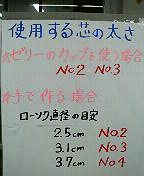 使用する芯の太さ
☆ゼリーのカップを使う場合
No.2 No.3
☆手で作る場合
ローソク直径の目安
2.5cm No.2
3.1cm No.3
3.7cm No.4